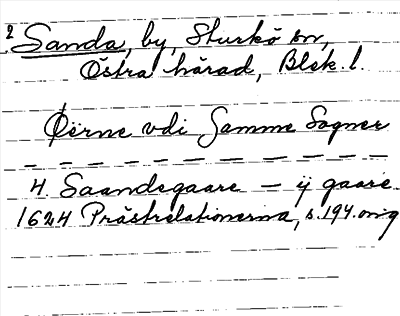 2 Sanda, by, Sturkö sn,
Östra härad, Blek. l.
Øërne vdi Samme Sogner
— — — — — — — — — —
4. Saandegaare — ij gaare
1624 Prästrelationerna, s. 194. orig